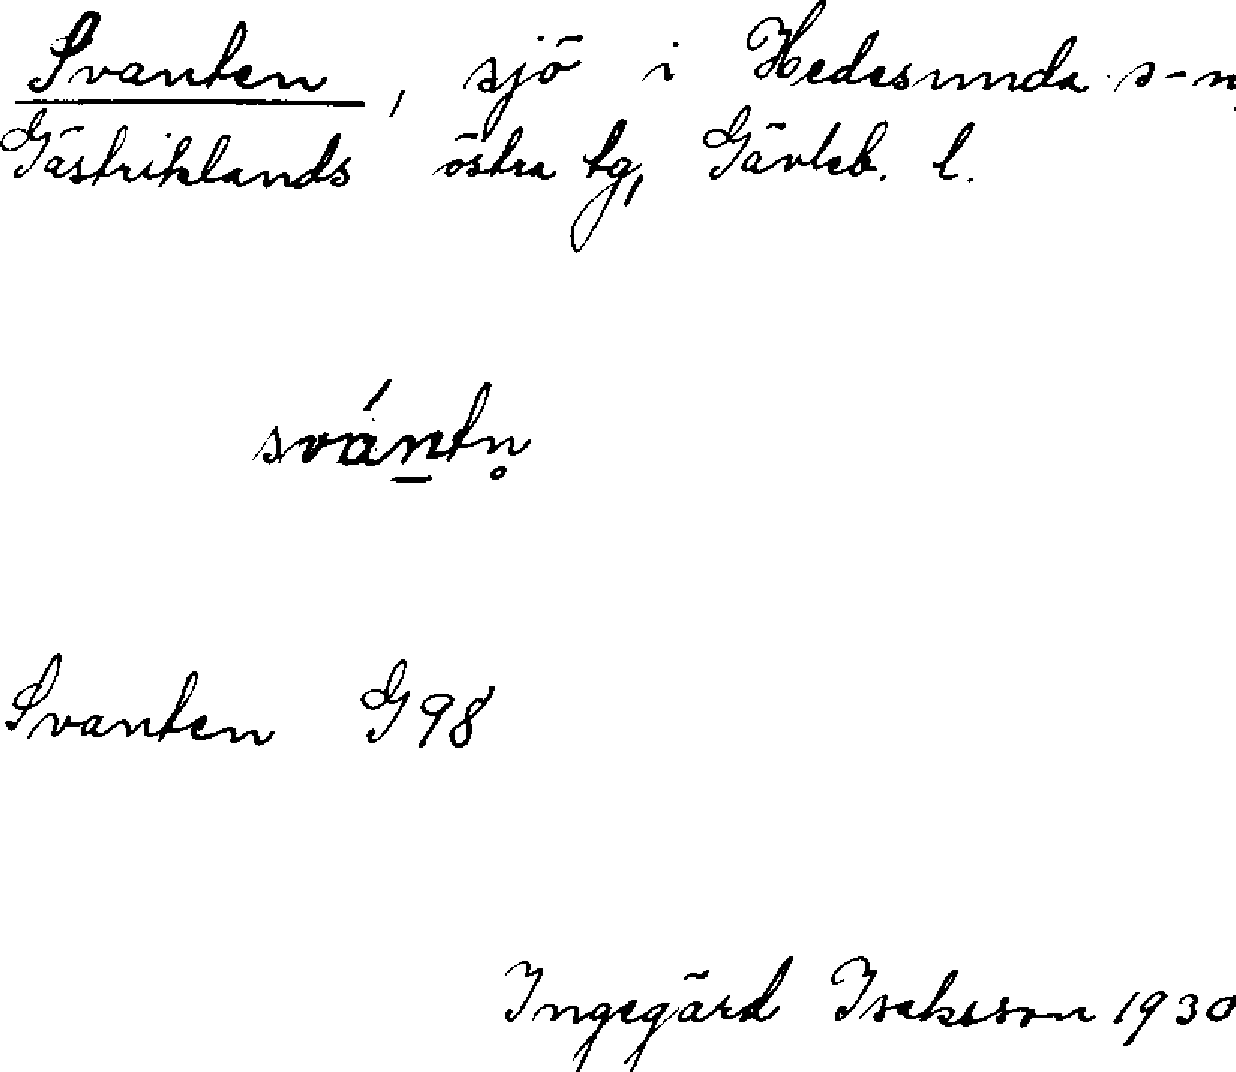 Svanten, sjö i Hedesunda s-n,
Gästriklands östra tg, Gävleb. l.
svántn̥
Svanten G 98
Ingegärd Isaksson 1930